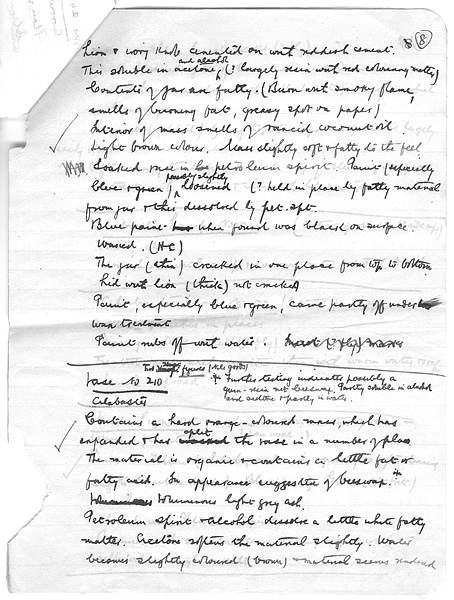 8 (8)
Lion & ivory knob cemented on with reddish cement.
and alcohol
This soluble in acetone, (? largely resin with red colouring matter)
Contents of jar are fatty. (Burn with smoky flame,
smells of burning fat, greasy spot on paper)
Interior of mass smells of rancid coconut oil.
Light brown colour. Mass slightly soft & fatty to the feel
Soaked vase in petroleum spirit. Paint (especially
possibly slightly
blue & green) loosened (? held in place by fatty material
from jar & this dissolved by pet. spt.
Blue paint when found was black on surface
Waxed. (HC)
The jar (thin) cracked in one place from top to bottom
Lid with lion (thick) not cracked
Paint, especially blue & green, came partly off under
wax treatment
Paint rubs off with water.
Two figures (Nile gods)
Vase No 210
* Further testing indicates possibly a
gum-resin not beeswax. Partly soluble in alcohol
and acetone & partly in water.
Alabaster
Contains a hard orange-coloured mass, which has
split
expanded & has the vase in a number of places
The material is organic & contains a little fat or
fatty acid. In appearance suggestive of beeswax. *
Voluminous light grey ash.
Petroleum spirit & alcohol dissolve a little white fatty
matter. Acetone softens the material slightly. Water
becomes slightly coloured (brown) & material seems